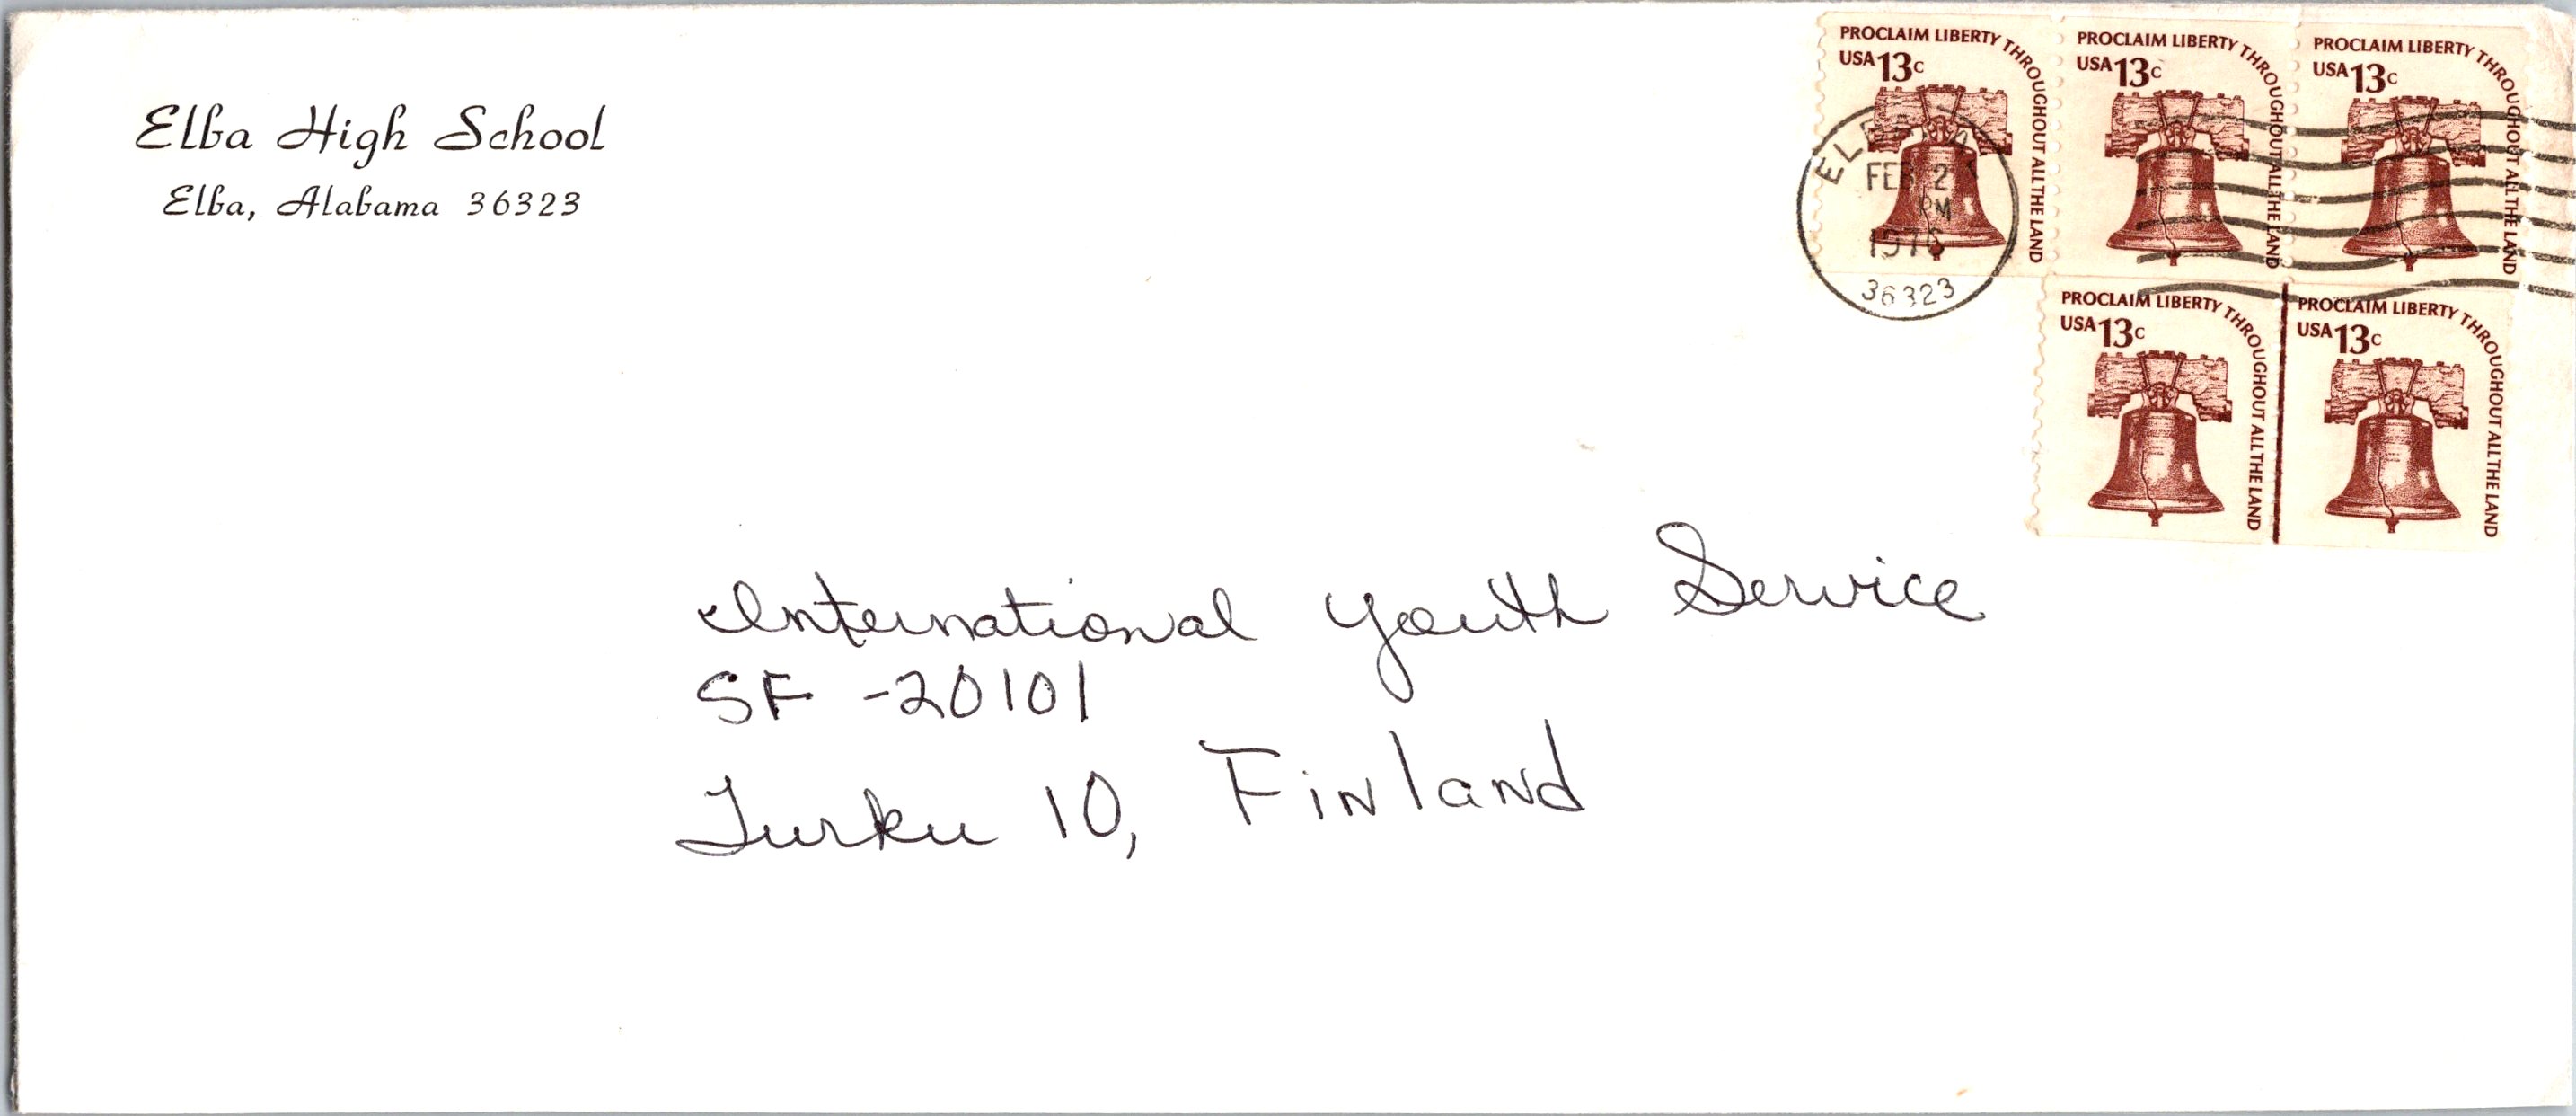 Elba High School
Elba, Alabama 36323
PROCLAIM LIBERTY THROUGHOUT ALL THE LAND
USA 13c
PROCLAIM LIBERTY THROUGHOUT ALL THE LAND
USA 13c
PROCLAIM LIBERTY THROUGHOUT ALL THE LAND
USA 13c
FEB 2
PM
1976
36323
PROCLAIM LIBERTY THROUGHOUT ALL THE LAND
USA 13c
PROCLAIM LIBERTY THROUGHOUT ALL THE LAND
USA 13c
International Youth Service
SF -20101
Turku 10, Finland